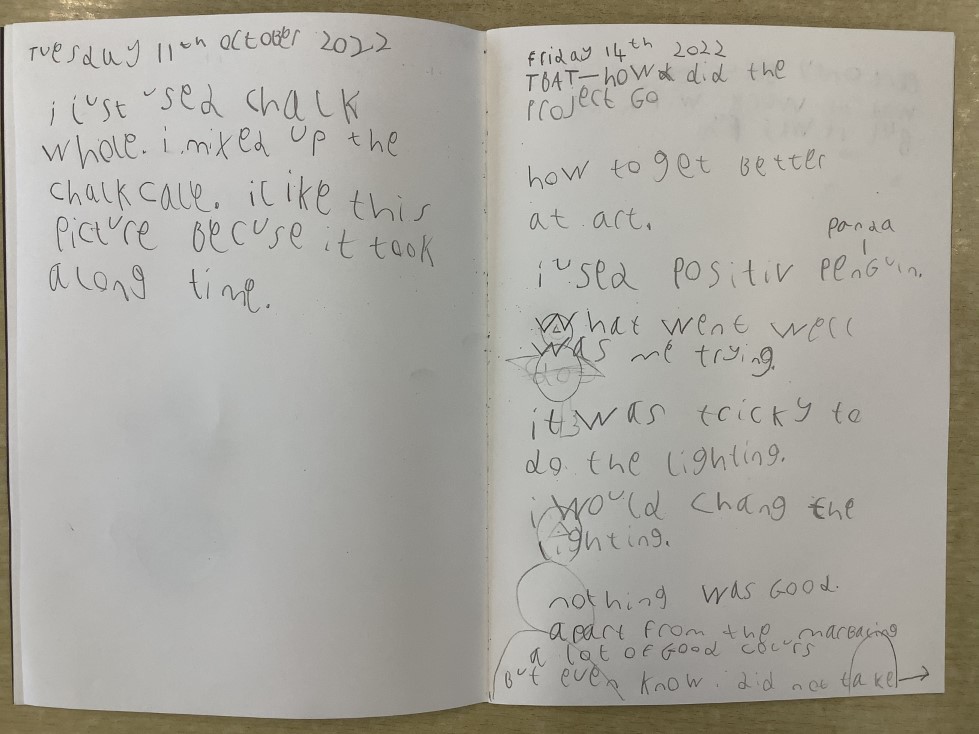 Tuesday 11th October 2022
i just used chalk
whole. i mixed up the
chalk call. i like this
picture Becuse it took
a long time.
friday 14th 2022
TBAT—how did the
project Go
how to get Better
at art.
panda
i used positiv penguin.
What went well
was me trying.
it was tricky to
do the lighting.
i would chang the
lighting.
nothing was Good.
apart from the
a lot of Good colurs
But even know i did not take →